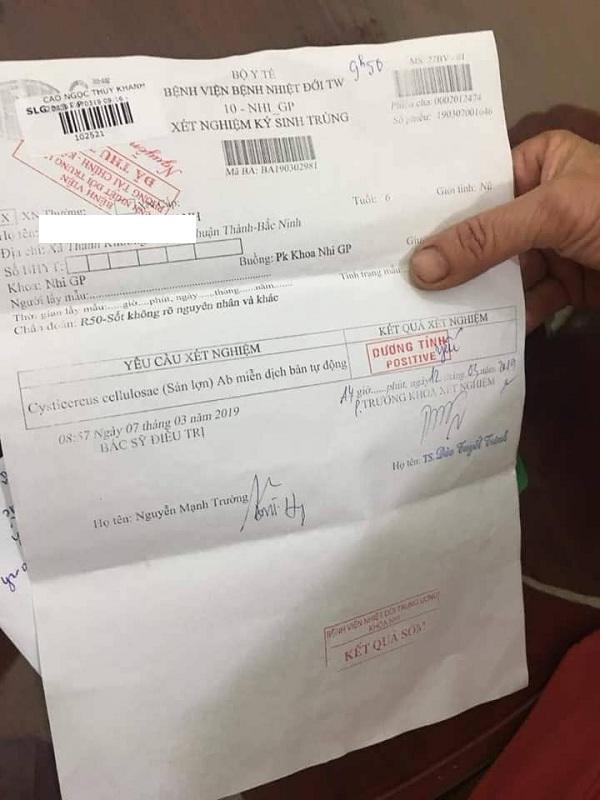 BỘ Y TẾ
BỆNH VIỆN BỆNH NHIỆT ĐỚI TW
10 - NHI_GP
XÉT NGHIỆM KÝ SINH TRÙNG
9h50
MS: 27BV - 01
Phiếu chỉ: 0002012474
Số phiếu: 190307001646
CAO NGỌC THÙY KHANH
102521
Mã BA: BA190302981
BỆNH VIỆN
ĐÃ THU
X XN Thường:
Họ tên:
Tuổi: 6
Giới tính: Nữ
Địa chỉ: Xã Thanh Thành-Bắc Ninh
Số BHYT:
Khoa: Nhi GP
Buồng: Pk Khoa Nhi GP
Người lấy mẫu:
Tình trạng mẫu:
Thời gian lấy mẫu:......giờ......phút, ngày......tháng......năm......
Chẩn đoán: R50-Sốt không rõ nguyên nhân và khác
YÊU CẦU XÉT NGHIỆM
KẾT QUẢ XÉT NGHIỆM
Cysticercus cellulosae (Sán lợn) Ab miễn dịch bán tự động
DƯƠNG TÍNH
POSITIVE
yếu
08:57 Ngày 07 tháng 03 năm 2019
BÁC SỸ ĐIỀU TRỊ
14 giờ......phút, ngày 12 tháng 03 năm 2019
P.TRƯỞNG KHOA XÉT NGHIỆM
Họ tên: Nguyễn Mạnh Trường
Họ tên: TS. Đào Tuyết Trinh
BỆNH VIỆN NHIỆT ĐỚI TRUNG ƯƠNG
KHOA NHI
KẾT QUẢ SỚM